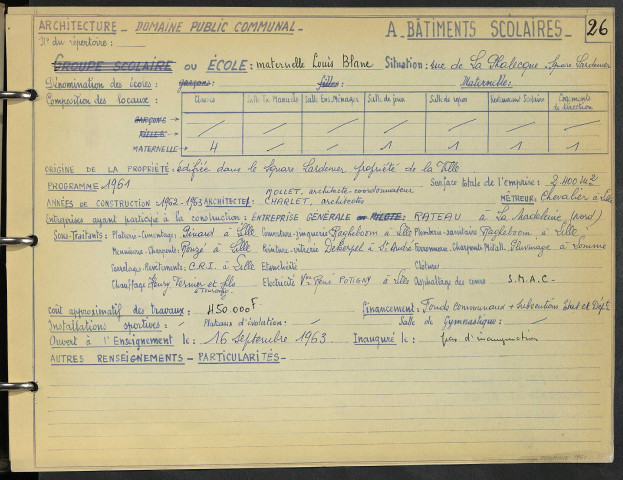 ARCHITECTURE - DOMAINE PUBLIC COMMUNAL - A - BÂTIMENTS SCOLAIRES - 26
N° du répertoire :
GROUPE SCOLAIRE ou ÉCOLE : maternelle Louis Blanc Situation : rue de La Phalecque Square Lardemer
Dénomination des écoles : garçons : filles : Maternelle :
Composition des locaux : Classes Salle Tx Manuels Salle Ens. Ménager Salle de jeux Salle de repos Restaurant Scolaire Logements de Direction
GARÇONS →
FILLES →
MATERNELLE → 4 1 1 1
ORIGINE DE LA PROPRIÉTÉ : édifiée dans le Square Lardemer propriété de la Ville
PROGRAMME 1961 MOLLET, architecte-coordonnateur Surface totale de l'emprise : 2.400 m2
ANNÉES DE CONSTRUCTION : 1962-1963 ARCHITECTE : CHARLET, architecte MÉTREUR : Chevalier à Lille
Entreprises ayant participé à la construction : ENTREPRISE GENERALE ou PILOTE : RATEAU à La Madeleine (nord)
Sous-Traitants : Platrerie-Cimentage : à Lille Couverture-zinguerie Ragheboom à Lille Plomberie-sanitaire Ragheboom à Lille
Menuiserie-Charpente : Rouzé à Lille Peinture-vitrerie à St André Ferronnerie-Charpente Métall. à Lomme
Carrelage-Revêtements : C.R.I. à Lille Etanchéité Clôtures
Chauffage Henry Ternier et fils à Tourcoing Electricité Vve René POTIGNY à Lille Asphaltage des cours S.M.A.C.
Coût approximatif des travaux : 450.000 F Financement : Fonds communaux + subvention Etat et Dépt
Installations sportives : Plateaux d'évolution : Salle de Gymnastique :
Ouvert à l'Enseignement le : 16 Septembre 1963 Inauguré le : pas d'inauguration
AUTRES RENSEIGNEMENTS - PARTICULARITÉS -